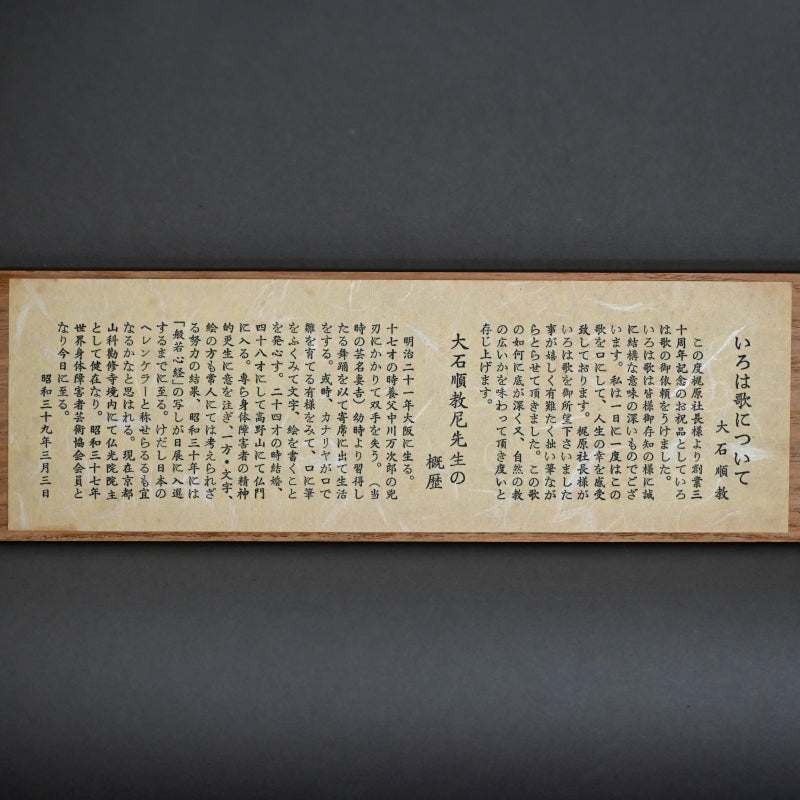 いろは歌について
大石順教
この度梶原社長様より創業三
十周年記念のお祝品としていろ
は歌の御依頼をうけました。
いろは歌は皆様御存知の様に誠
に結構な意味の深いものでござ
います。私は一日に一度はこの
歌を口にして、人生の幸を感受
致しております。梶原社長様が
いろは歌を御所望下さいました
事が嬉しく有難たく拙い筆なが
らとらせて頂きました。この歌
の如何に底が深く又、自然の教
の広いかを味わって頂き度いと
存じ上げます。
大石順教尼先生の
概歴
明治二十一年大阪に生る。
十七才の時養父中川万次郎の兇
刃にかかりて双手を失う。（当
時の芸名妻吉）幼時より習得し
たる舞踊を以て寄席に出て生活
をする。或時、カナリヤが口で
雛を育てる有様をみて、口に筆
をふくみて文字、絵を書くこと
を発心す。二十四才の時結婚、
四十八才にして高野山にて仏門
に入る。専ら身体障害者の精神
的更生に意を注ぎ、一方・文字、
絵の方も常人にては考えられざ
る努力の結果、昭和三十年には
「般若心経」の写しが日展に入選
するまでに至る。けだし日本の
ヘレンケラーと称せらるるも宜
なるかなと思はれる。現在京都
山科勸修寺境内にて仏光院院主
として健在なり。昭和三十七年
世界身体障害者芸術協会会員と
なり今日に至る。
昭和三十九年三月三日